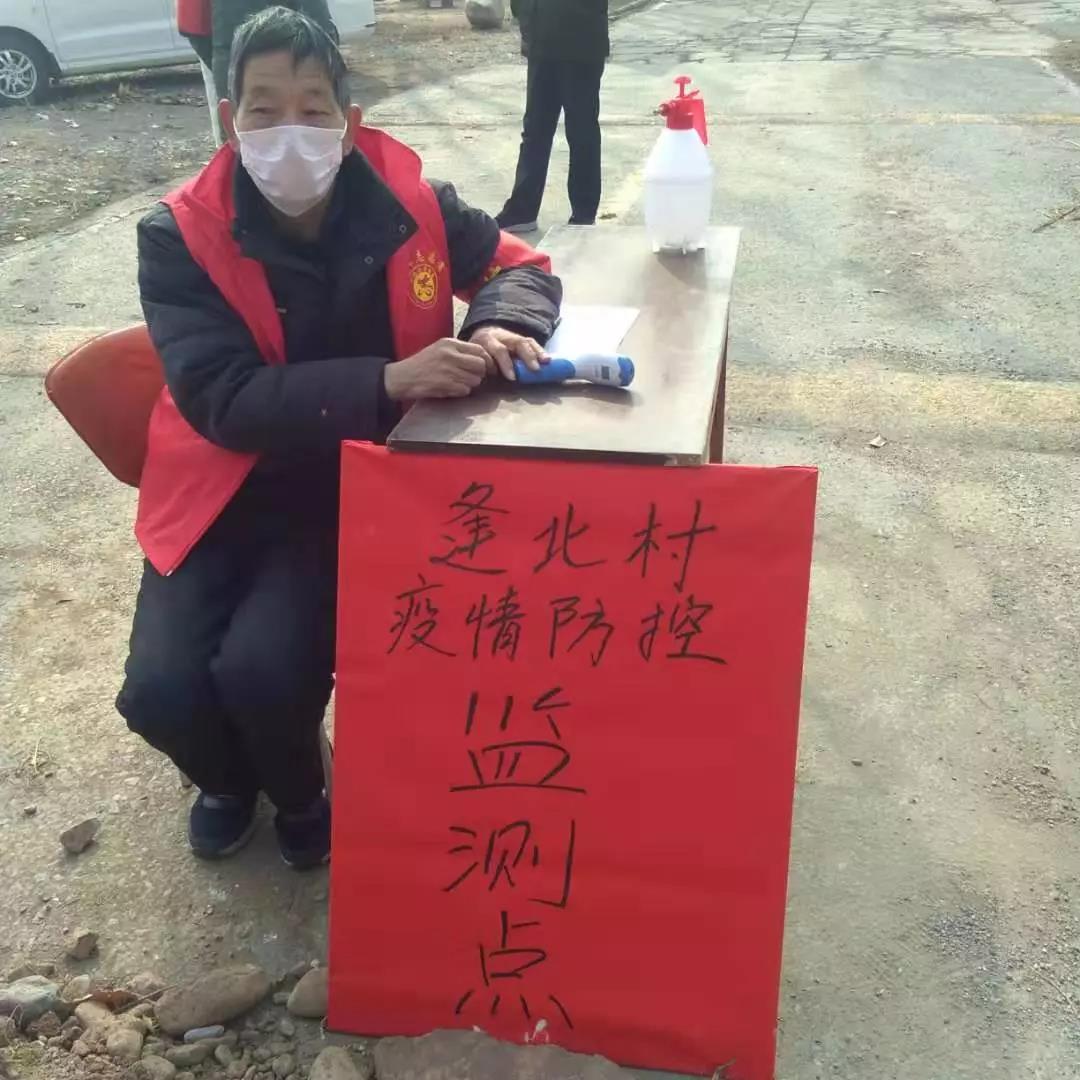 逢北村
疫情防控
监
测
点